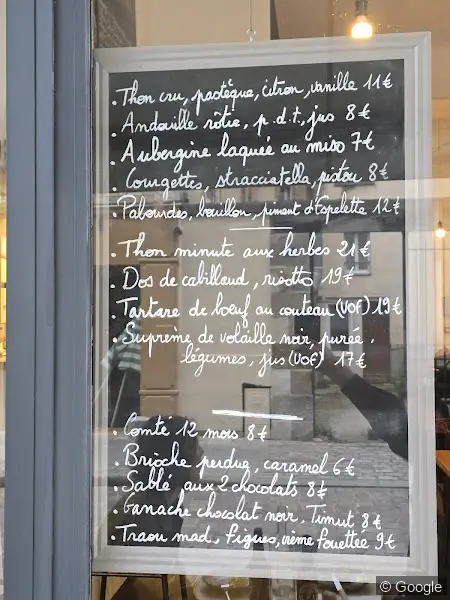 . Thon cru, pastèque, citron, vanille 11€
. Andouille rôtie, p.d.t., jus 8€
. Aubergine laquée au miso 7€
. Courgettes, stracciatella, pistou 8€
. Palourdes, bouillon, piment d'Espelette 12€
. Thon minute aux herbes 21€
. Dos de cabillaud, risotto 19€
. Tartare de bœuf au couteau (VOF) 19€
. Suprême de volaille noir, purée,
légumes, jus (VOF) 17€
. Comté 12 mois 8€
. Brioche perdue, caramel 6€
. Sablé aux 2 chocolats 8€
. Ganache chocolat noir, Timut 8€
. Traou mad, figues, crème fouettée 9€
© Google